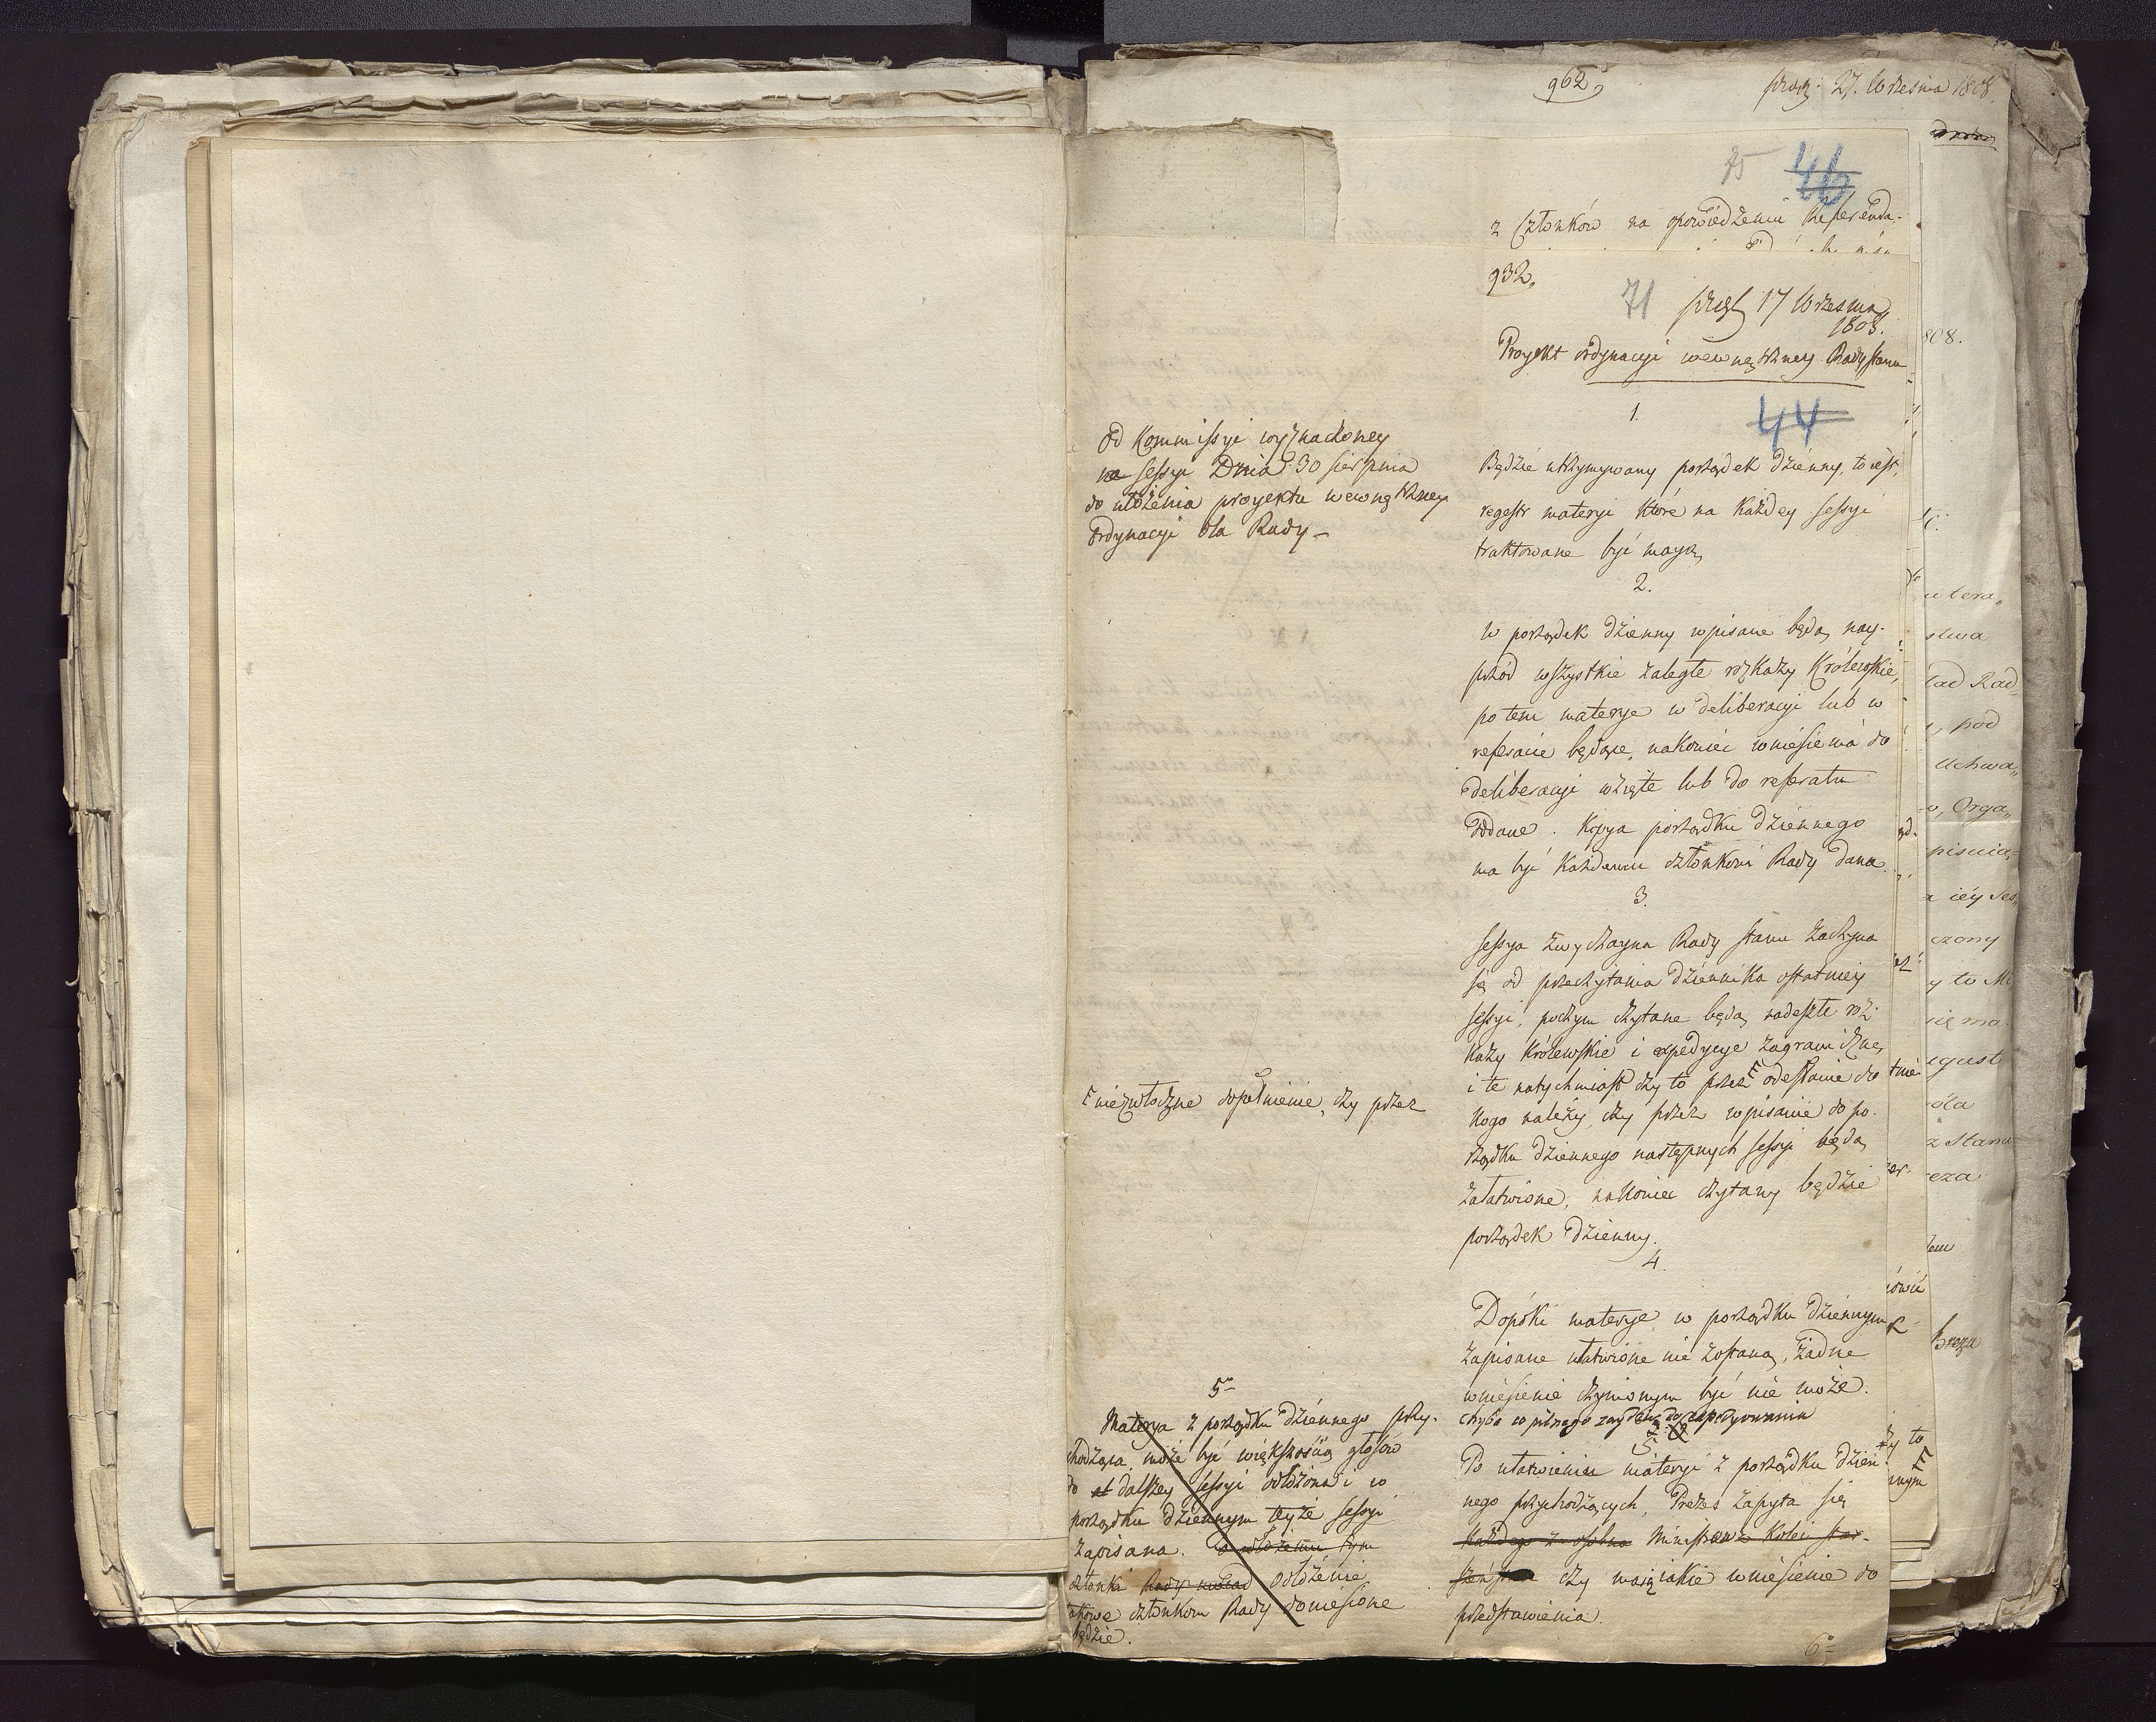 962,
27. Września 1808.
75 46
z Członków na opowiedzeniu Referenda-
932,
71 17 Września
1808.
Proyekt ordynacyi wewnętrzney Rady Stanu
1.
44
Od Kommissyi wyznaczoney
na sessyi Dnia 30 sierpnia
do ułożenia proyektu wewnętrzney
Ordynacyi dla Rady –
Będzie utrzymywany porządek dzienny, to iest,
regestr materyi które na każdey sessyi
traktowane być maią,
2.
W porządek dzienny wpisane będą nay-
przód wszystkie zaległe rozkazy Królewskie,
potem materye w deliberacyi lub w
referacie będące, nakoniec wniesienia do
deliberacyi wzięte lub do referatu
oddane. Kopya porządku dziennego
ma być każdemu członkowi Rady dana.
3.
Sessya zwyczayna Rady Stanu zaczyna
się od przeczytania dziennika ostatniey
sessyi, poczym czytane będą nadeszłe roz-
kazy Królewskie i expedycye zagraniczne,
i te natychmiast czy to przez odesłanie do
niezwłoczne dopełnienie, czy przez
kogo należy, czy przez wpisanie do po-
rządku dziennego następnych sessyi będą
załatwione, nakoniec czytany będzie
porządek dzienny.
4.
Dopóki materye w porządku dziennym
zapisane ułatwione nie zostaną, żadne
wniesienie czynionym być nie może.
chyba w pilnego do expedyowania
5.
Po ułatwieniu materyi z porządku dzien-
nego przychodzących, Prezes zapyta się
każdego z osobna Ministrów z kolei star-
szeństwa czy maią iakie wniesienie do
przedstawienia.
6°
5°
Materya z porządku dziennego przy-
chodząca, może być większością głosów
do dalszey sessyi odłożona i w
porządku dziennym teyże sessyi
zapisana. o odłożeniu tym
członki Rady odłożenie
takowe członkom Rady doniesione
będzie.
808.
stwa
, pod
Uchwa„
, Orga„
pisnia
czony
y to
się ma
ola
Breza